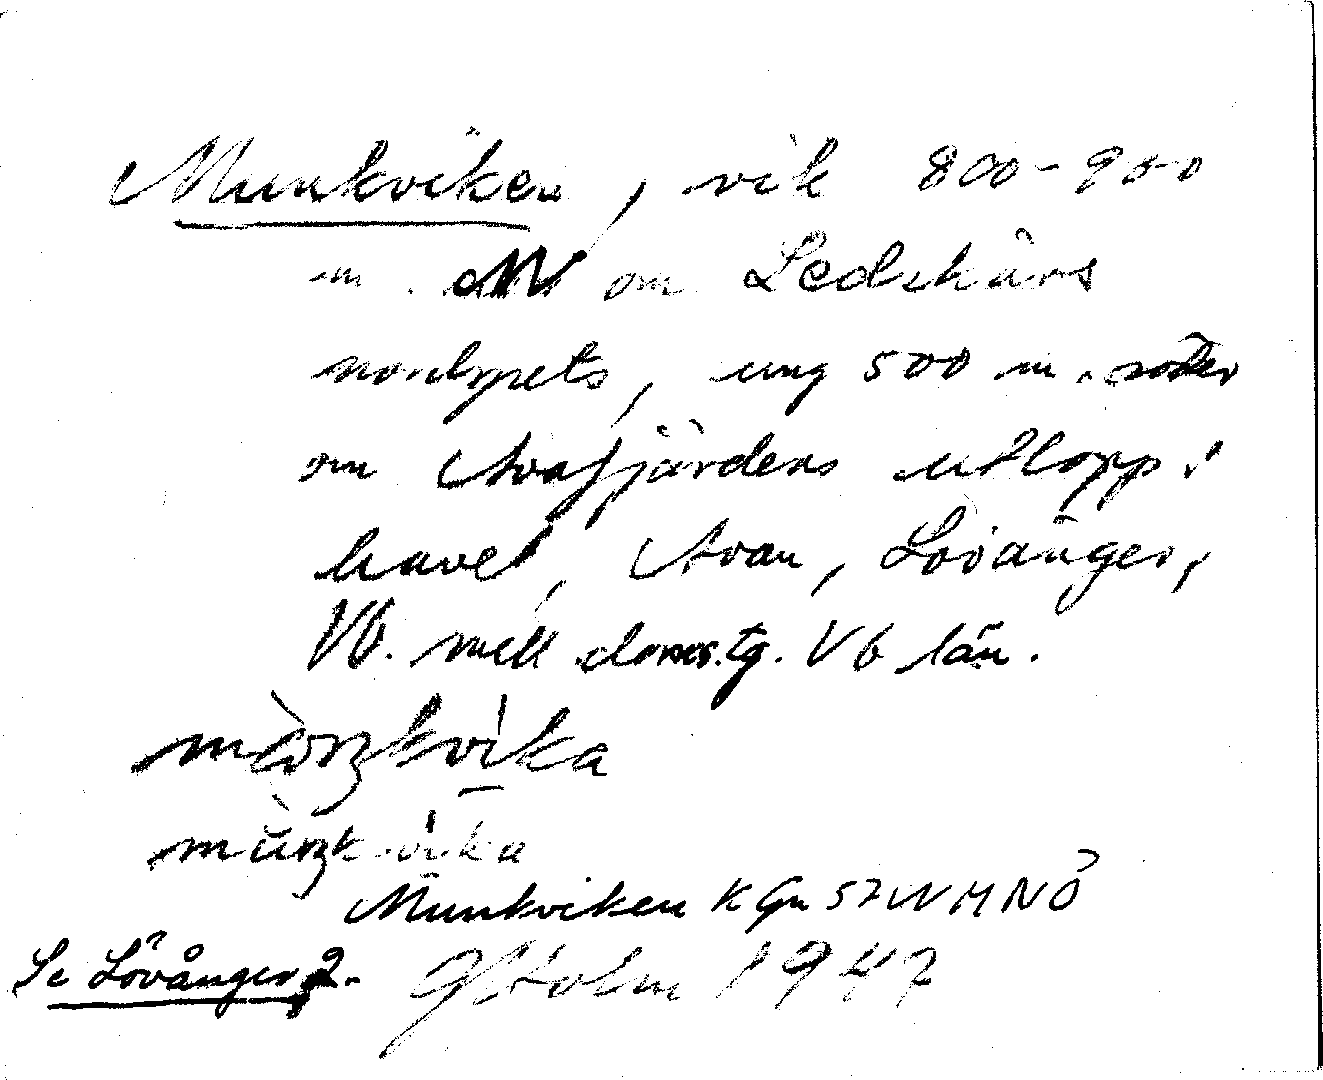 Munkviken, vik 800-900
m. NV om Ledskärs
nordspets, ung 500 m. söder
om Avafjärdens utlopp i
havet, Avan, Lövånger,
Vb. mell doms.tg. Vb län.
Munkviken K Gn 57 NV HNÖ
Se Lövånger 2. GHolm 1947